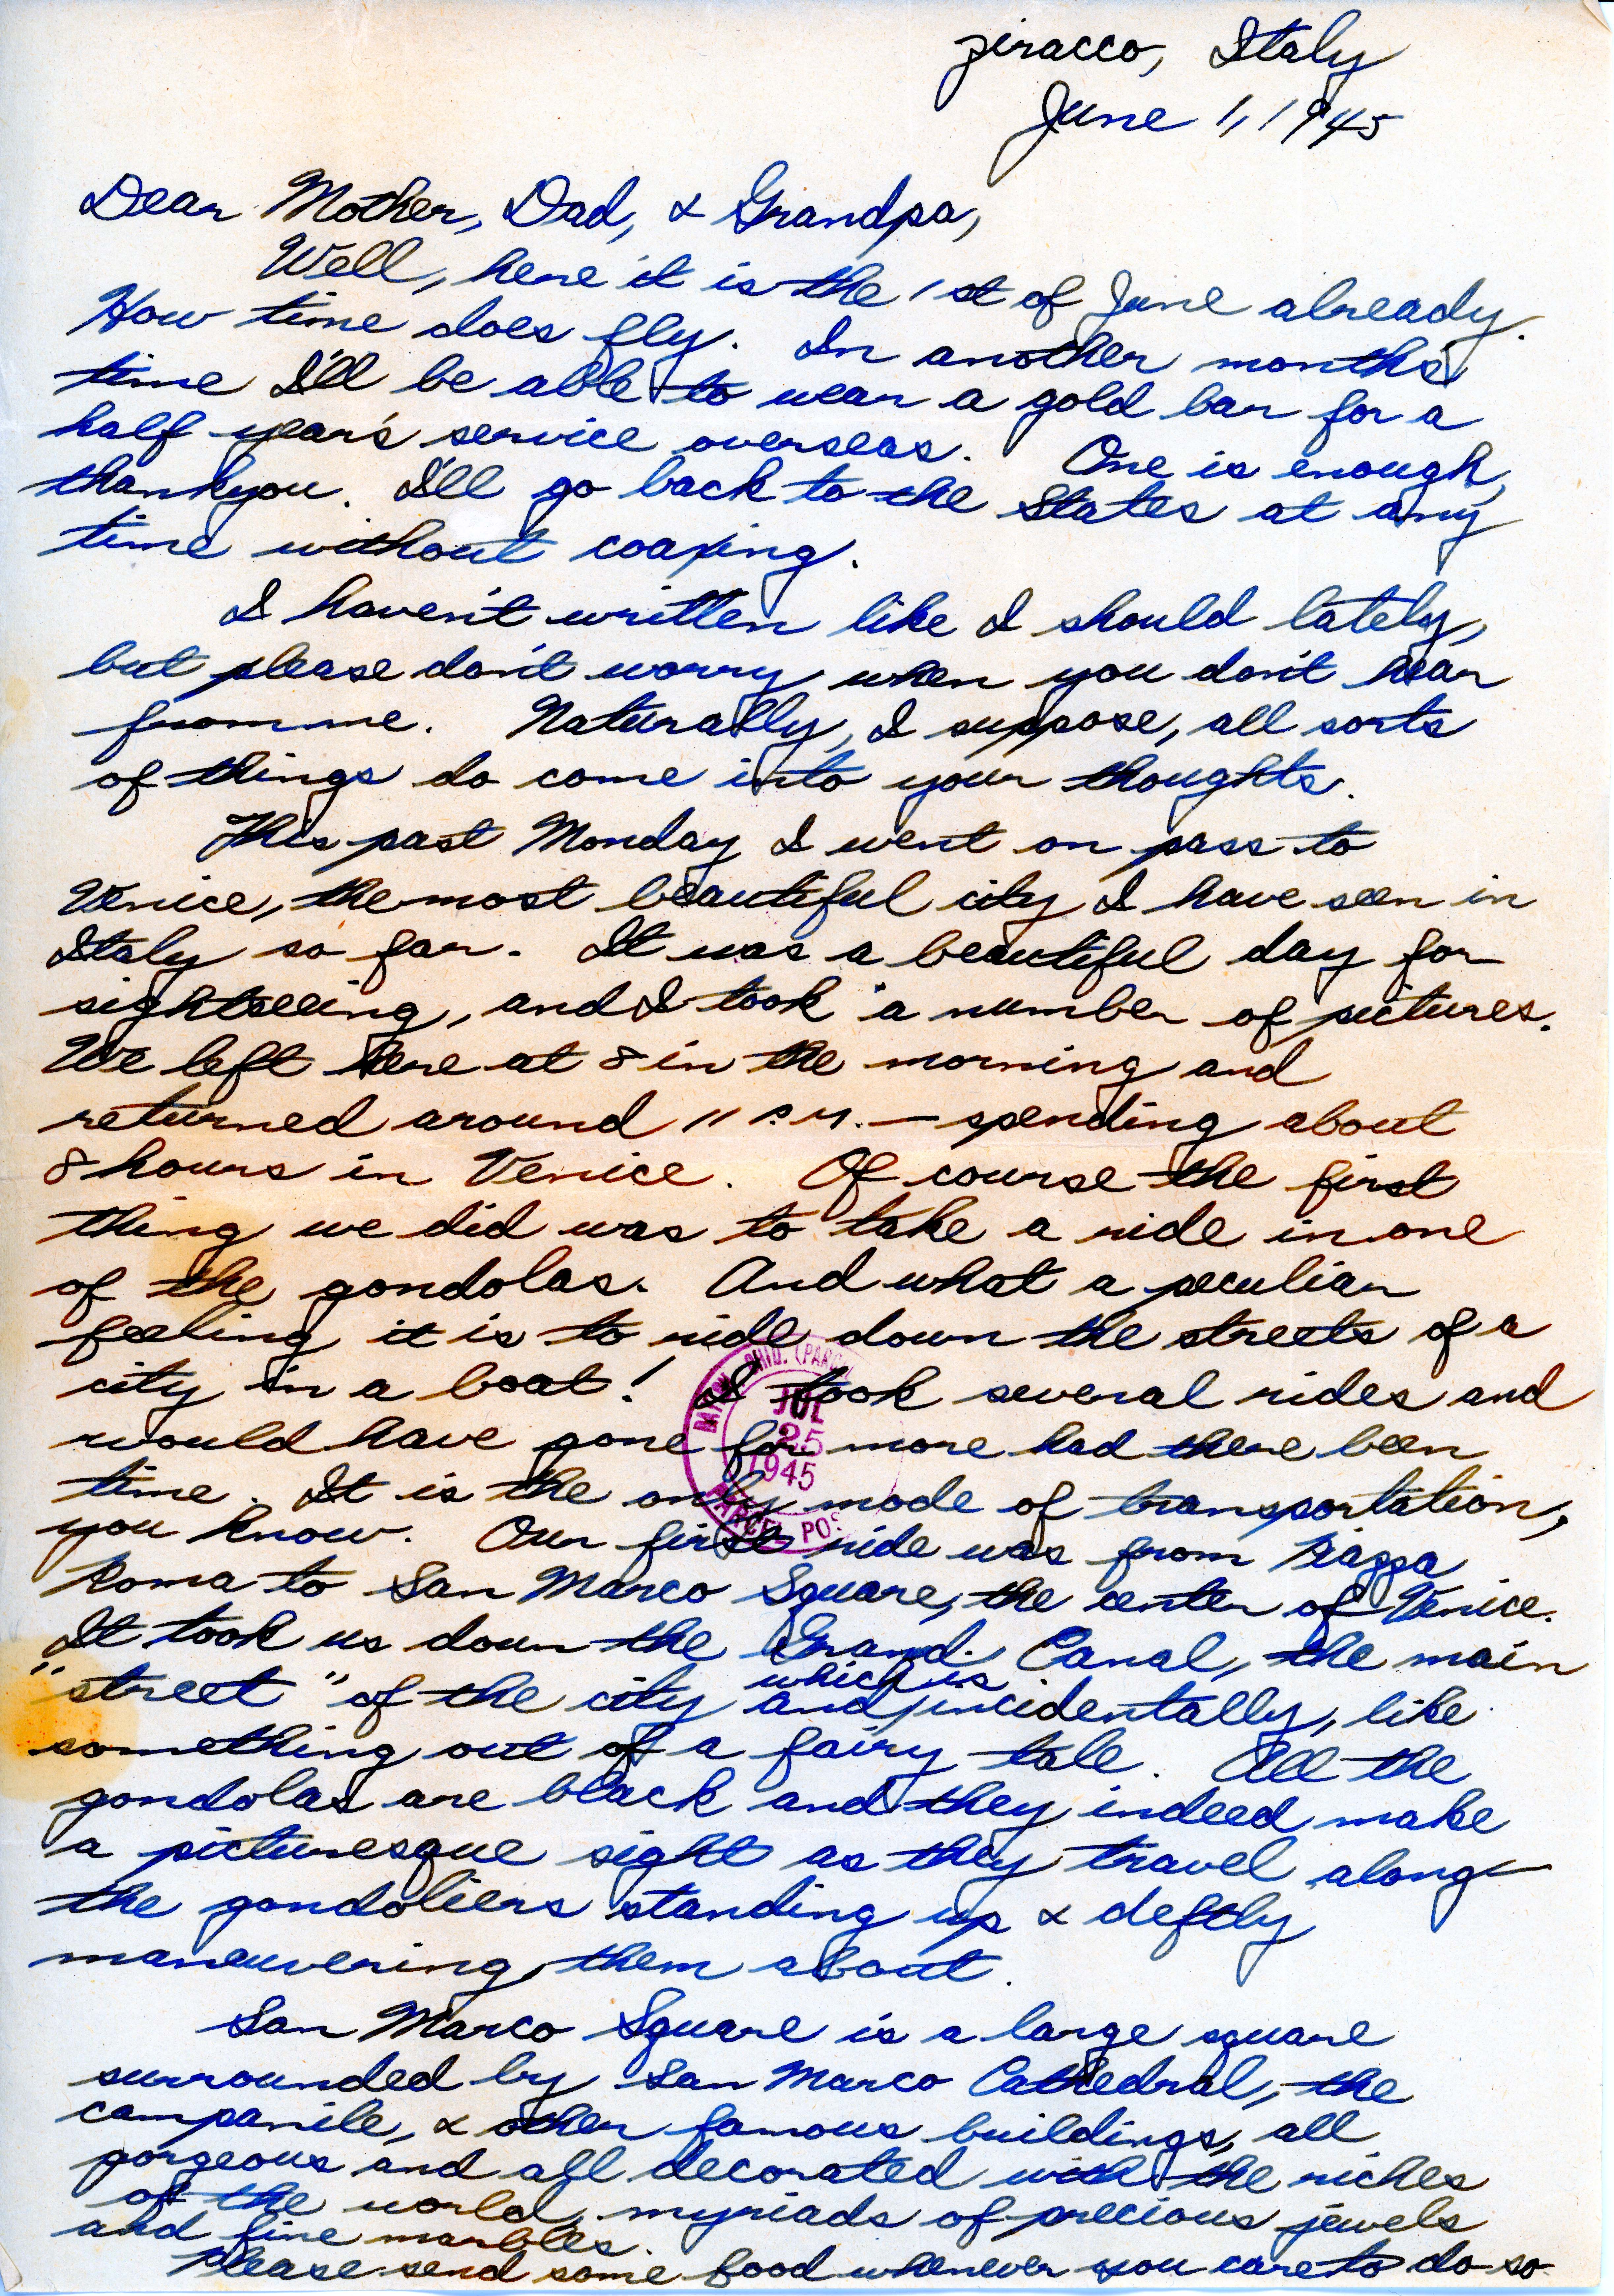 Ziracco, Italy
June 1, 1945
Dear Mother, Dad, & Grandpa,
Well, here it is the 1st of June already.
How time does fly. In another month's
time I'll be able to wear a gold bar for a
half year's service overseas. One is enough,
thankyou. I'll go back to the States at any
time without coaxing.
I haven't written like I should lately,
but please don't worry when you don't hear
from me. Naturally, I suppose, all sorts
of things do come into your thoughts.
This past Monday I went on pass to
Venice, the most beautiful city I have seen in
Italy so far. It was a beautiful day for
sightseeing, and I took a number of pictures.
We left here at 8 in the morning and
returned around 11 P.M. — spending about
8 hours in Venice. Of course the first
thing we did was to take a ride in one
of the gondolas. And what a peculiar
feeling it is to ride down the streets of a
city in a boat! I took several rides and
would have gone for more had there been
time. It is the only mode of transportation,
you know. Our first ride was from Piazza
Roma to San Marco Square, the center of Venice.
It took us down the Grand Canal, the main
"street" of the city and which is, incidentally, like
something out of a fairy tale. All the
gondolas are black and they indeed make
a picturesque sight as they travel along—
the gondoliers standing up & deftly
maneuvering them about.
San Marco Square is a large square
surrounded by San Marco Cathedral, the
campanile, & other famous buildings, all
gorgeous and all decorated with the riches
of the world, myriads of precious jewels
and fine marbles.
Please send some food whenever you care to do so.
JUL
25
1945
PARCEL POS